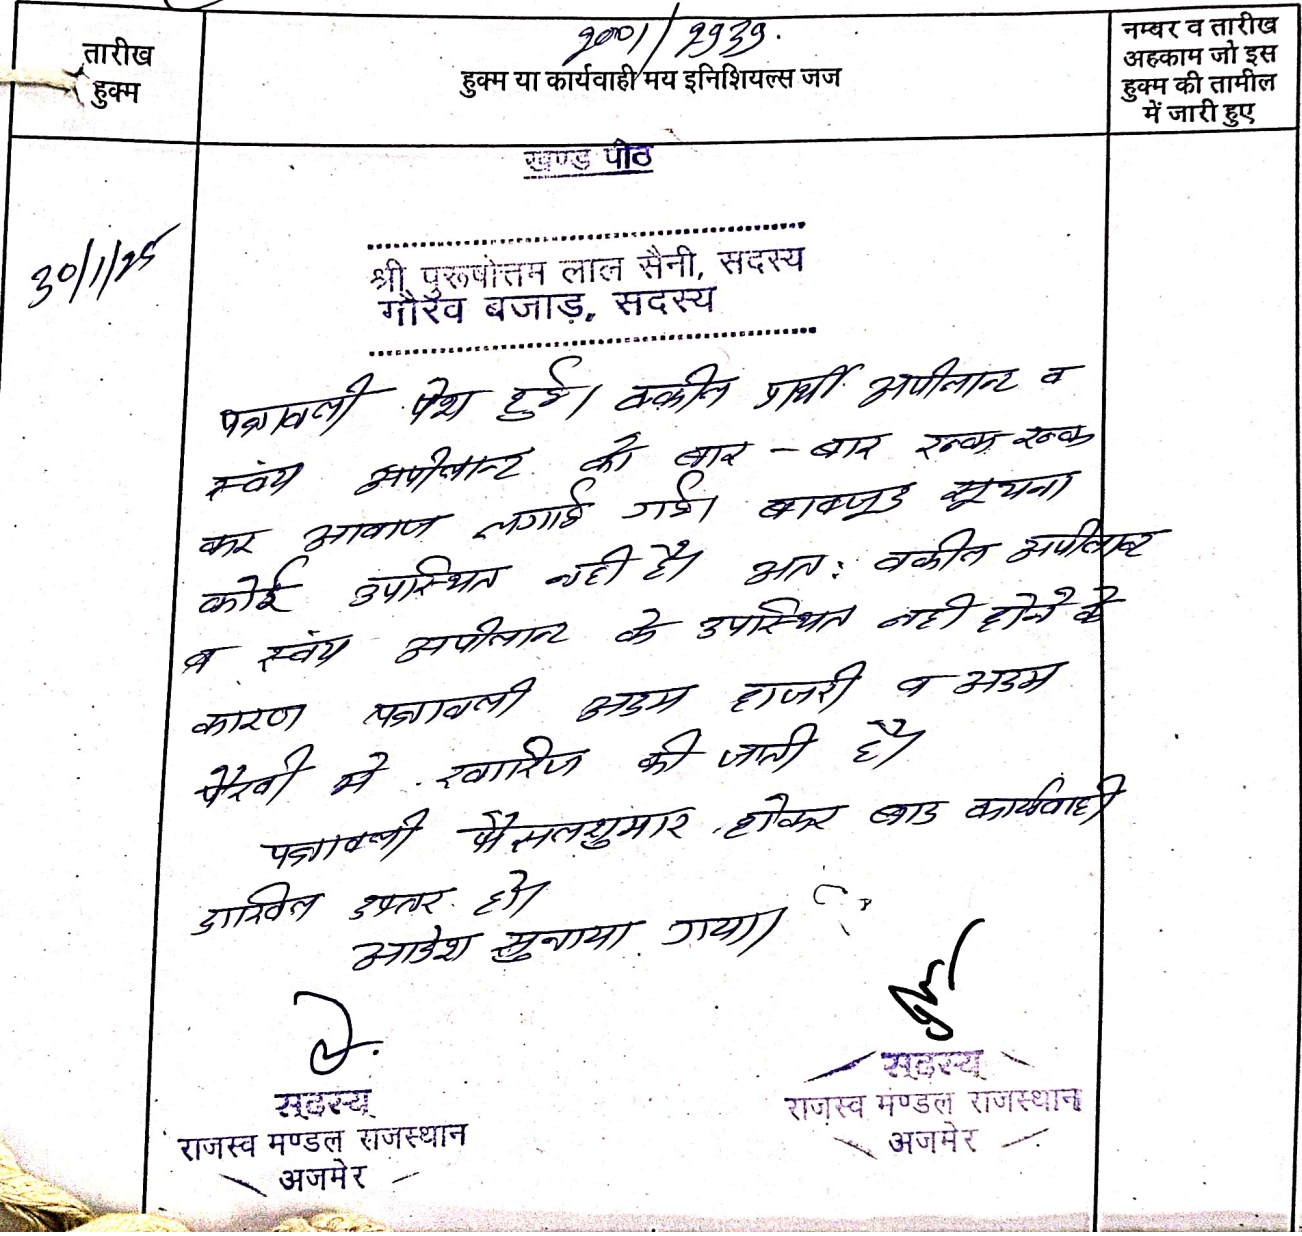 2001/2939.
तारीख
हुक्म
हुक्म या कार्यवाही मय इनिशियल्स जज
नम्बर व तारीख
अहकाम जो इस
हुक्म की तामील
में जारी हुए
खण्ड पीठ
30/1/25
श्री पुरूषोत्तम लाल सैनी, सदस्य
गौरव बजाड़, सदस्य
पत्रावली पेश हुई। वकील प्रार्थी अपीलान्ट व
स्वंय अपीलान्ट को बार - बार रूक रूक
कर आवाज लगाई गई। बावजूद सूचना
कोई उपस्थित नही है। अत: वकील अपीलान्ट
व स्वंय अपीलान्ट के उपस्थित नही होने के
कारण पत्रावली अदम हाजरी व अदम
पैरवी मे खारिज की जाती है।
पत्रावली फैसलशुमार होकर बाद कार्यवाही
दाखिल दफ्तर हो।
आदेश सुनाया गया।
सदस्य
राजस्व मण्डल राजस्थान
अजमेर
सदस्य
राजस्व मण्डल राजस्थान
अजमेर